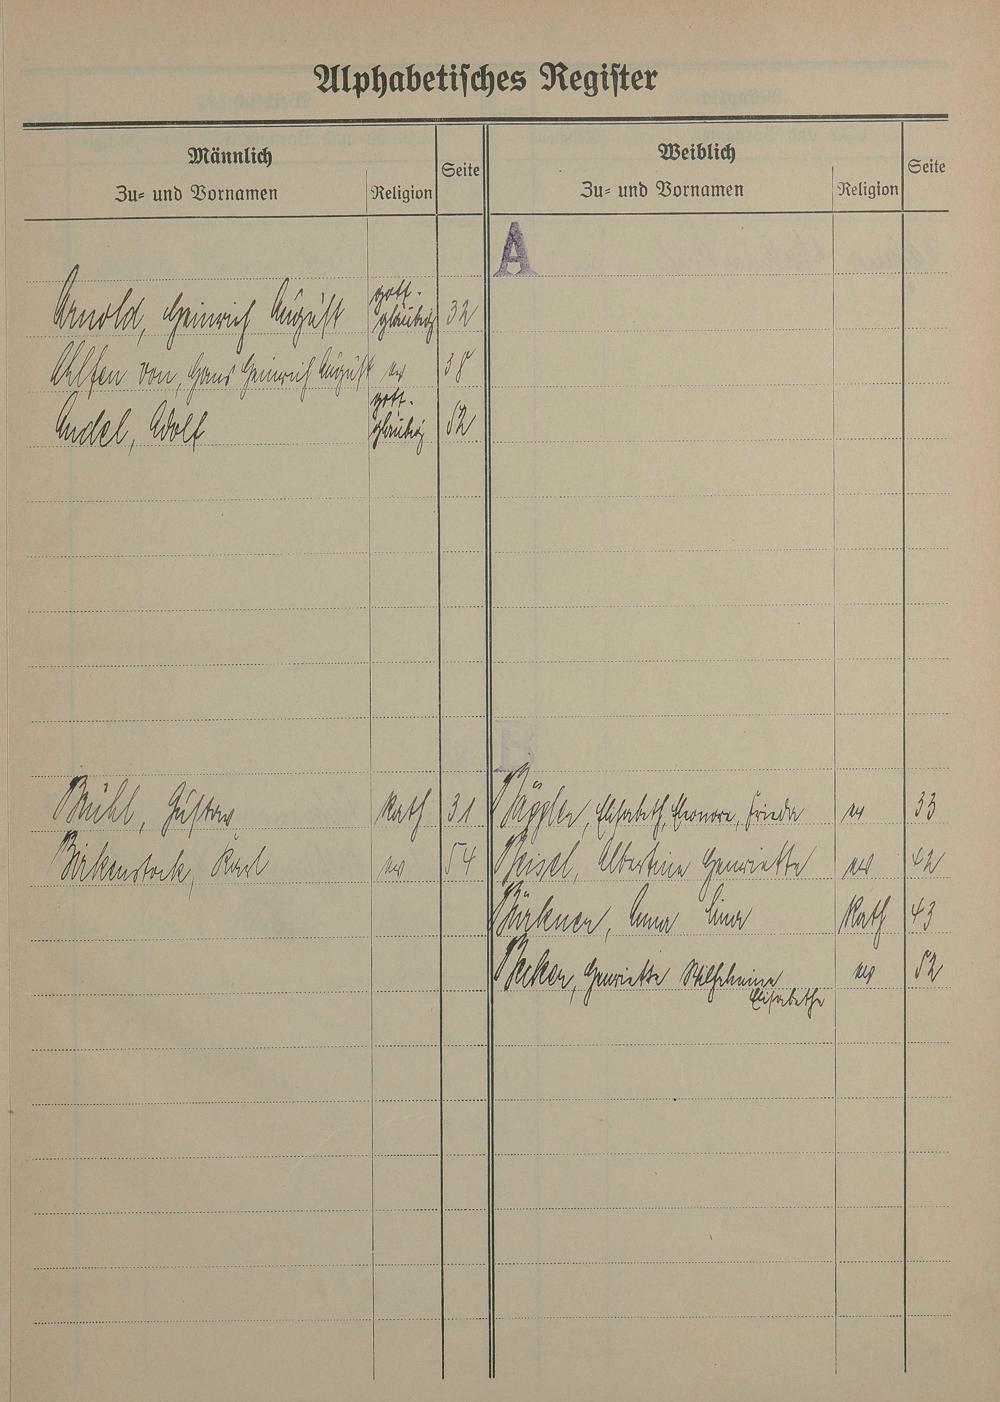 Alphabetisches Register
Männlich
Zu- und Vornamen
Religion
Seite
Weiblich
Zu- und Vornamen
Religion
Seite
A
Arnold, Heinrich August gott-
gläubig 32
Ahlfen von, Hans Heinrich August ev 38
Andel, Adolf gott-
gläubig 52
B
Bühl, Gustav Kath 31
Birkenstock, Karl ev 54
Elisabeth, Eleonore, Frieda ev 33
Beisel, Albertine Henriette ev 42
Bürkner, Anna Lina Kath 43
Becker, Henriette Wilhelmine
Elisabethe ev 52